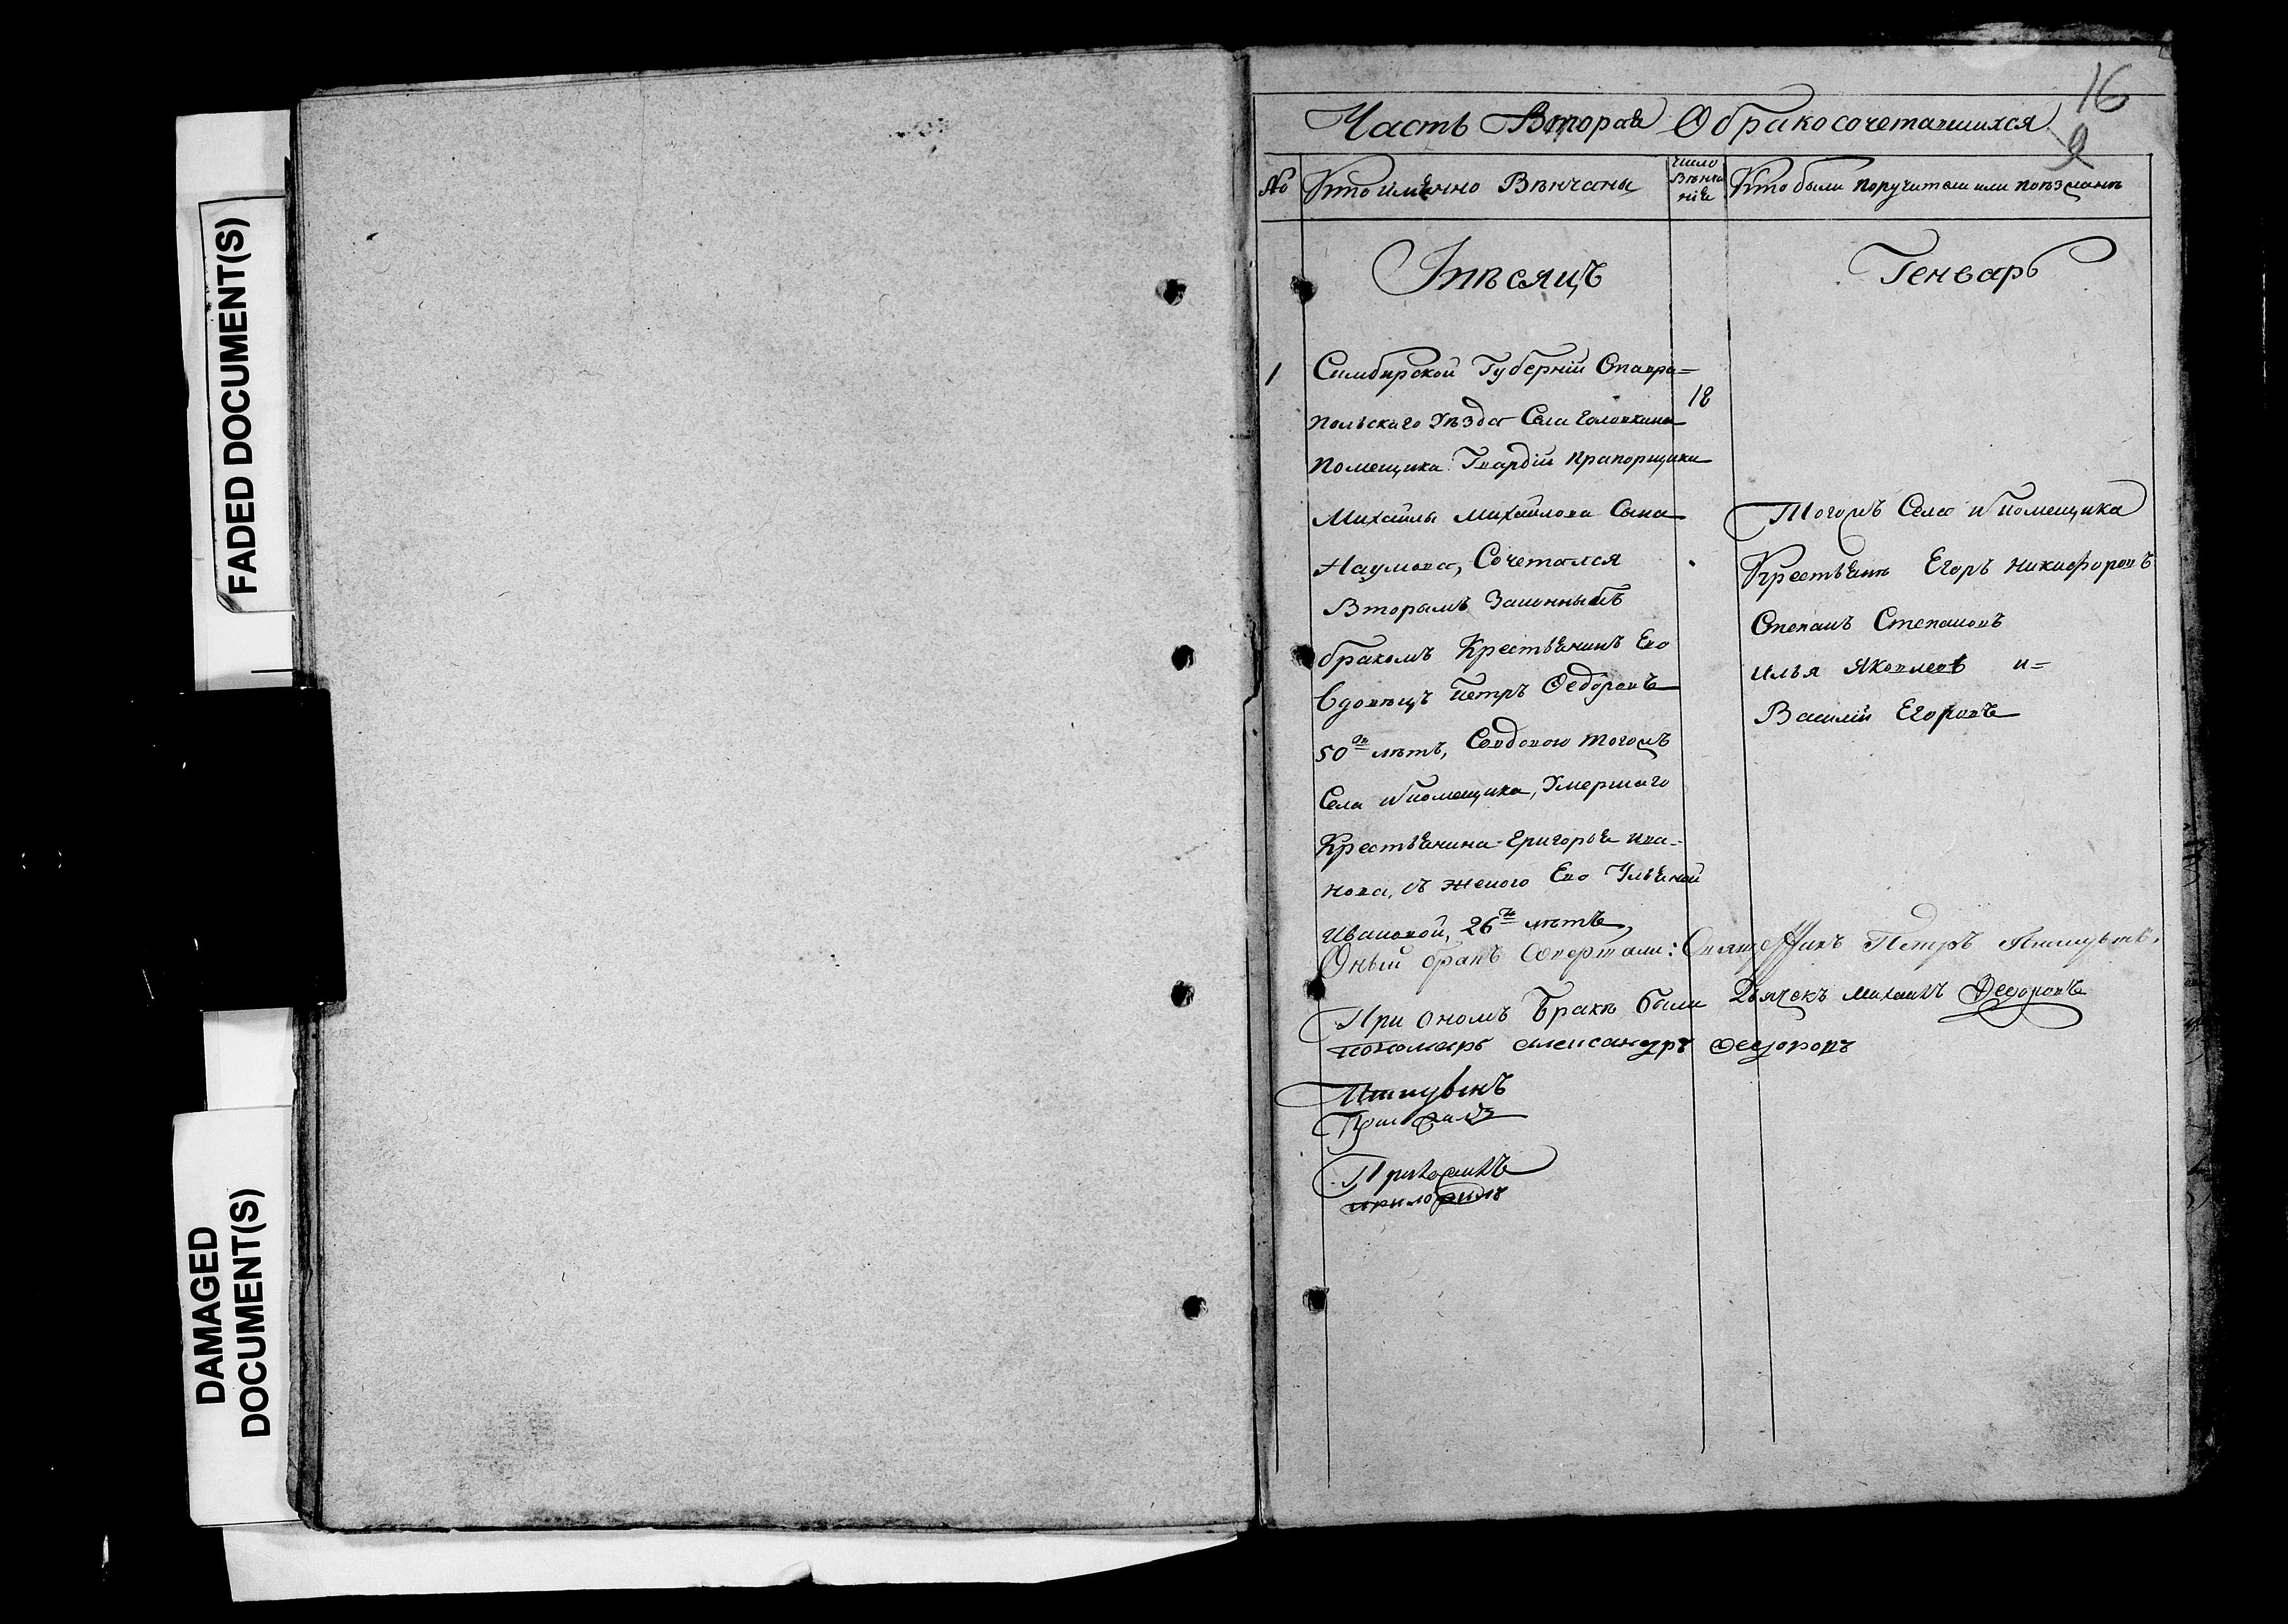 FADED DOCUMENT(S)
DAMAGED
DOCUMENT(S)
16
Часть Вторая О бракосочетавшихся
9
№
Кто имянно Венчаны
число
Венча
нія
Кто были поручители или поезжане
Месяцъ
Генварь
1
Симбирской Губерніи Ставро=
18
польскаго Уезда Села Головкина
помещика Гвардіи прапорщика
Михайлы Михайлова Сына
Наумова, Сочетался
Вторымъ Законнымъ
бракомъ Крестьянинъ Ево
вдовецъ Петръ Федоровъ
50ти летъ, Совдовою тогожъ
Села и помещика, Умершаго
Крестьянина Григорья Ива=
нова, съ женою Ево Ульяной
Ивановой, 26ти летъ,
Тогожъ Села и помещика
Крестьяня Егоръ Никифоровъ
Степанъ Степановъ
Илья Яковлевъ и=
Василій Егоровъ
Оный бракъ Совершали: Священникъ Петръ
При ономъ Браке были Дьячекъ Михаилъ Федоровъ
пономарь Александръ Федоровъ